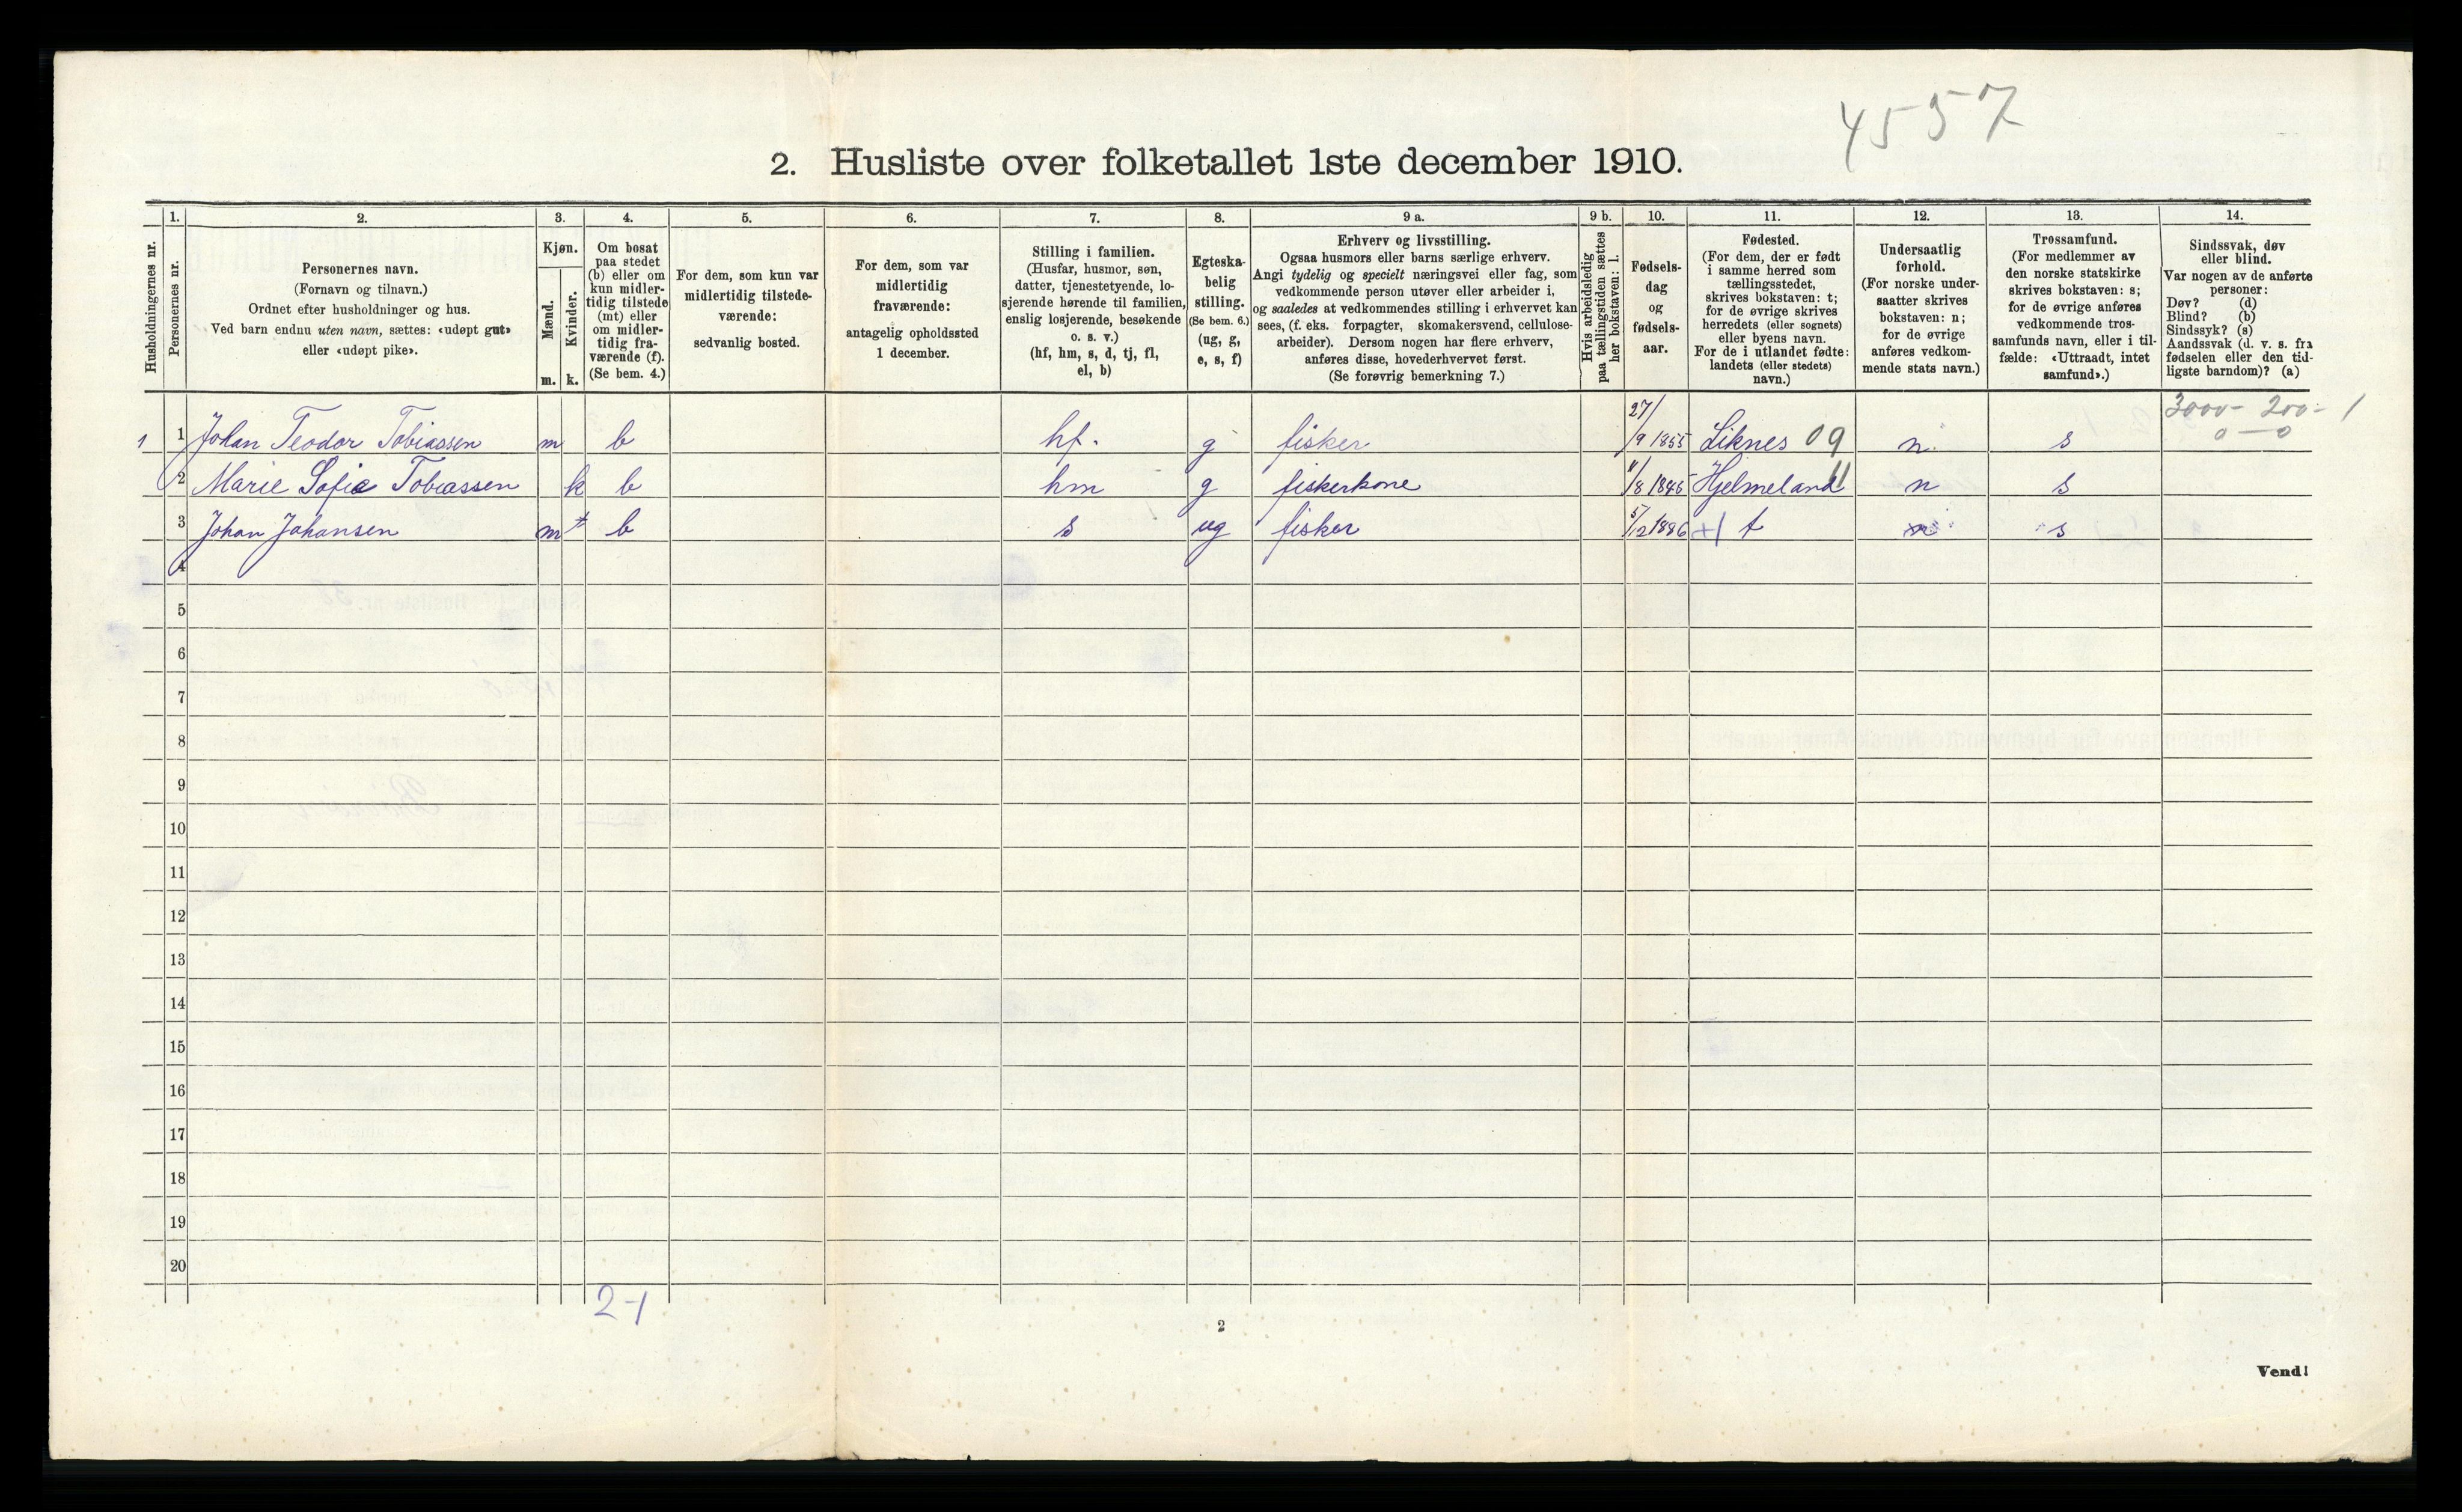 4557
2. Husliste over folketallet 1ste december 1910.
Husholdningernes nr.
1.
Personernes nr.
2.
Personernes navn.
(Fornavn og tilnavn.)
Ordnet efter husholdninger og hus.
Ved barn endnu uten navn, sættes: «udøpt gut»
eller «udøpt pike».
3.
Kjøn.
Mænd.
Kvinder.
m. k.
4.
Om bosat
paa stedet
(b) eller om
kun midler-
tidig tilstede
(mt) eller
om midler-
tidig fra-
værende (f).
(Se bem. 4.)
5.
For dem, som kun var
midlertidig tilstede-
værende:
sedvanlig bosted.
6.
For dem, som var
midlertidig
fraværende:
antagelig opholdssted
1 december.
7.
Stilling i familien.
(Husfar, husmor, søn,
datter, tjenestetyende, lo-
sjerende hørende til familien,
enslig losjerende, besøkende
o. s. v.)
(hf, hm, s, d, tj, fl,
el, b)
8.
Egteska-
belig
stilling.
(Se bem. 6.)
(ug, g,
e, s, f)
9 a.
Erhverv og livsstilling.
Ogsaa husmors eller barns særlige erhverv.
Angi tydelig og specielt næringsvei eller fag, som
vedkommende person utøver eller arbeider i,
og saaledes at vedkommendes stilling i erhvervet kan
sees, (f. eks. forpagter, skomakersvend, cellulose-
arbeider). Dersom nogen har flere erhverv,
anføres disse, hovederhvervet først.
(Se forøvrig bemerkning 7.)
9 b.
Hvis arbeidsledig
paa tællingstiden sættes
her bokstaven: l.
10.
Fødsels-
dag
og
fødsels-
aar.
11.
Fødested.
(For dem, der er født
i samme herred som
tællingsstedet,
skrives bokstaven: t;
for de øvrige skrives
herredets (eller sognets)
eller byens navn.
For de i utlandet fødte:
landets (eller stedets)
navn.)
12.
Undersaatlig
forhold.
(For norske under-
saatter skrives
bokstaven: n;
for de øvrige
anføres vedkom-
mende stats navn.)
13.
Trossamfund.
(For medlemmer av
den norske statskirke
skrives bokstaven: s;
for de øvrige anføres
vedkommende tros-
samfunds navn, eller i til-
fælde: «Uttraadt, intet
samfund».)
14.
Sindssvak, døv
eller blind.
Var nogen av de anførte
personer:
Døv? (d)
Blind? (b)
Sindssyk? (s)
Aandssvak (d. v. s. fra
fødselen eller den tid-
ligste barndom)? (a)
3000- 200- 1
0 — 0
1 1 Johan Teodor Tobiassen m b hf. g fisker 27/9 1855 Liknes 09 n. s
2 Marie Sofie Tobiassen k b hm g fiskerkone 11/8 1845 Hjelmeland 11 n s
3 Johan Johansen m b s ug fisker 5/12 1886 +1 t n s
4
5
6
7
8
9
10
11
12
13
14
15
16
17
18
19
20
2-1
2
Vend!